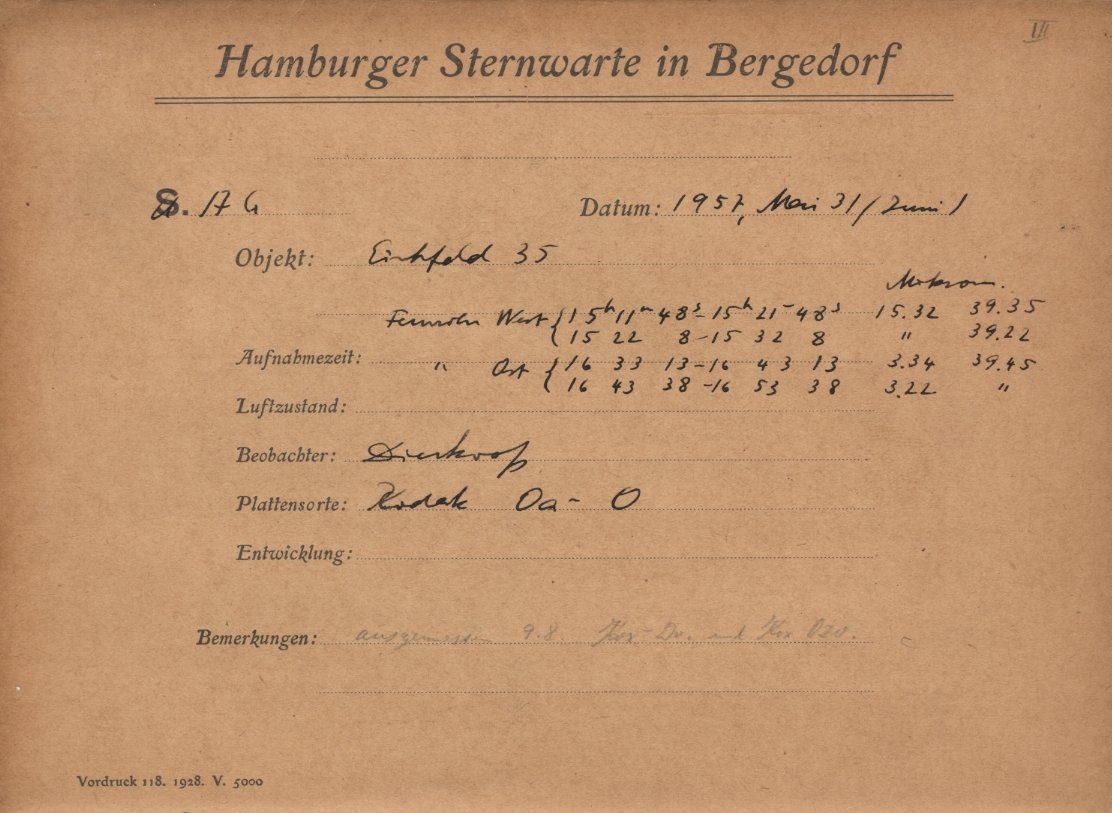 III
Hamburger Sternwarte in Bergedorf
S. AG Datum: 1957, Mai 31/Juni 1
Objekt: Eichfeld 35
Mikrom.
Fernrohr West { 15h 11m 48s - 15h 21m 48s 15.32 39.35
15 22 8 - 15 32 8 " 39.22
Aufnahmezeit: " Ost { 16 33 13 - 16 43 13 3.34 39.45
16 43 38 - 16 53 38 3.22 "
Luftzustand:
Beobachter: Dieckvoß
Plattensorte: Kodak Oa-O
Entwicklung:
Bemerkungen: ausgemessen 9.8. Kox - Dv. und Kox
Vordruck 118. 1928. V. 5000